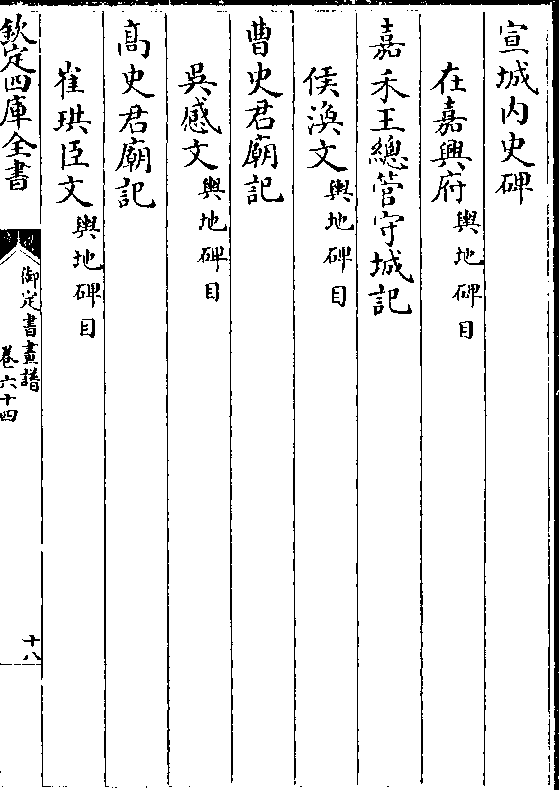 宣城内史碑
在嘉興府輿地碑目
嘉禾王總管守城記
侯渙文輿地碑目
曹史君廟記
吳感文輿地碑目
高史君廟記
崔珙臣文輿地碑目
欽定四庫全書
御定書畫譜
卷六十四
十八